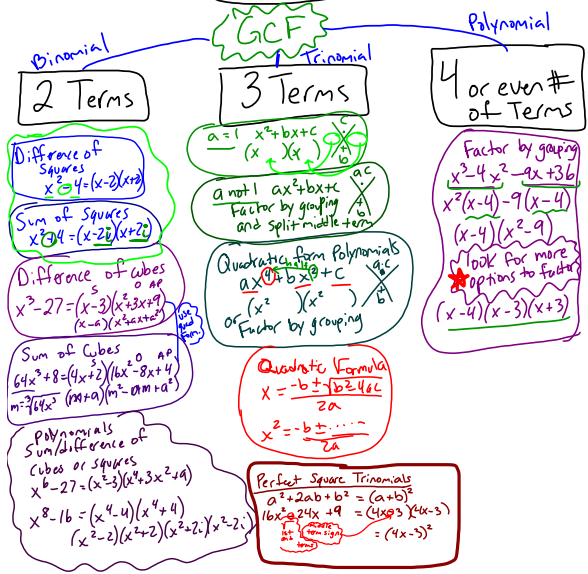 GCF
Binomial
Trinomial
Polynomial
2 Terms
3 Terms
4 or even #
of Terms
Difference of
Squares
x²-4=(x-2)(x+2)
Sum of Squares
x²+4=(x-2i)(x+2i)
Difference of cubes
S O AP
x³-27=(x-3)(x²+3x+9)
(x-a)(x²+ax+a²)
use
quad
form.
Sum of Cubes
S O AP
64x³+8=(4x+2)(16x²-8x+4)
m=³√64x³ (m+a)(m²-am+a²)
Polynomials
Sum/difference of
cubes or squares
x⁶-27=(x²-3)(x⁴+3x²+9)
x⁸-16=(x⁴-4)(x⁴+4)
(x²-2)(x²+2)(x²+2i)(x²-2i)
a=1 x²+bx+c
(x )(x )
c
+
b
a not 1 ax²+bx+c
Factor by grouping
and split middle term
ac
+
b
Quadratic form Polynomials
half
ax⁴+bx²+c
(x² )(x² )
or Factor by grouping
a·c
+
b
Quadratic Formula
x=-b±√b²-4ac
2a
x²=-b±.....
2a
Perfect Square Trinomials
a²+2ab+b²=(a+b)²
16x²-24x+9=(4x-3)(4x-3)
=(4x-3)²
√
1st
and
terms
middle
term sign
Factor by grouping
x³-4x²-9x+36
x²(x-4)-9(x-4)
(x-4)(x²-9)
look for more
options to factor
(x-4)(x-3)(x+3)